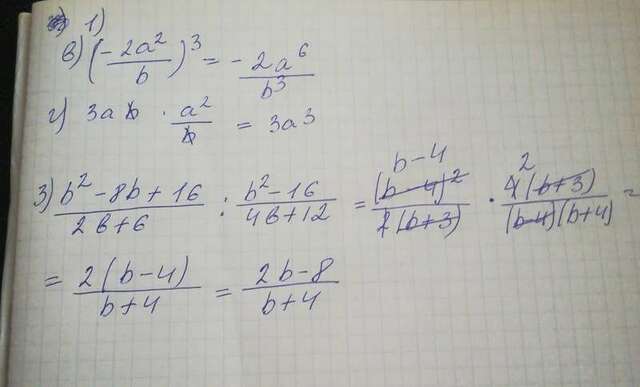 1)
в) (-2a²/b)³ = -2a⁶/b³
г) 3ab · a²/b = 3a³
3) b²-8b+16/2b+6 : b²-16/4b+12 = (b-4)²/2(b+3) b-4 · 4(b+3)/(b-4)(b+4) 2 =
= 2(b-4)/b+4 = 2b-8/b+4